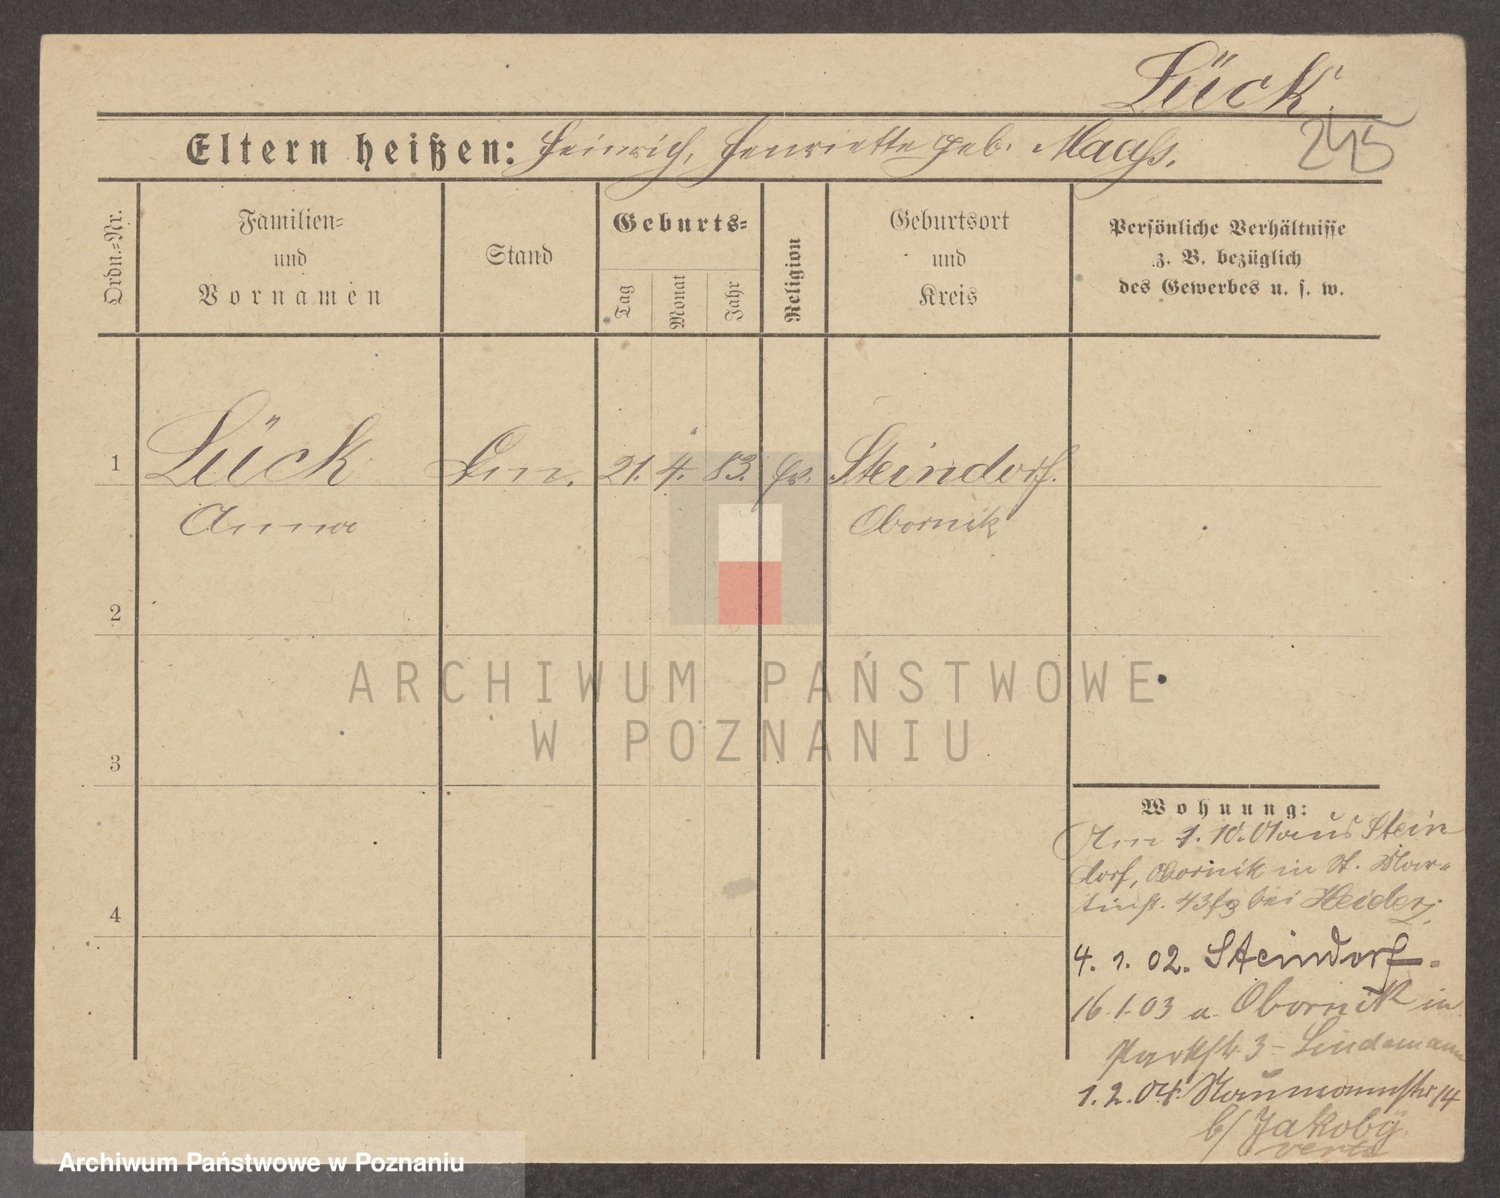 Lück.
245
Eltern heißen: Heinrich, Henriette geb. Maahs.
Ordn.-Nr.
Familien-
und
Vornamen
Stand
Geburts-
Tag
Monat
Jahr
Religion
Geburtsort
und
Kreis
Persönliche Verhältnisse
z. B. bezüglich
des Gewerbes u. s. w.
1
Lück
21. 4. 83.
Steindorf.
Anna
Obornik
2
3
4
ARCHIWUM PAŃSTWOWE
W POZNANIU
Wohnung:
Am 1. 10. 01 aus Stein
dorf, Obornik in St. Mar-
tinst. 43 bei Heider,
4. 1. 02. Steindorf.
16.1.03 a. Obornik in
Parkstr 3 - Lindemann
1.2.04. Naumannstr 14
b/ Jakoby
verte
Archiwum Państwowe w Poznaniu